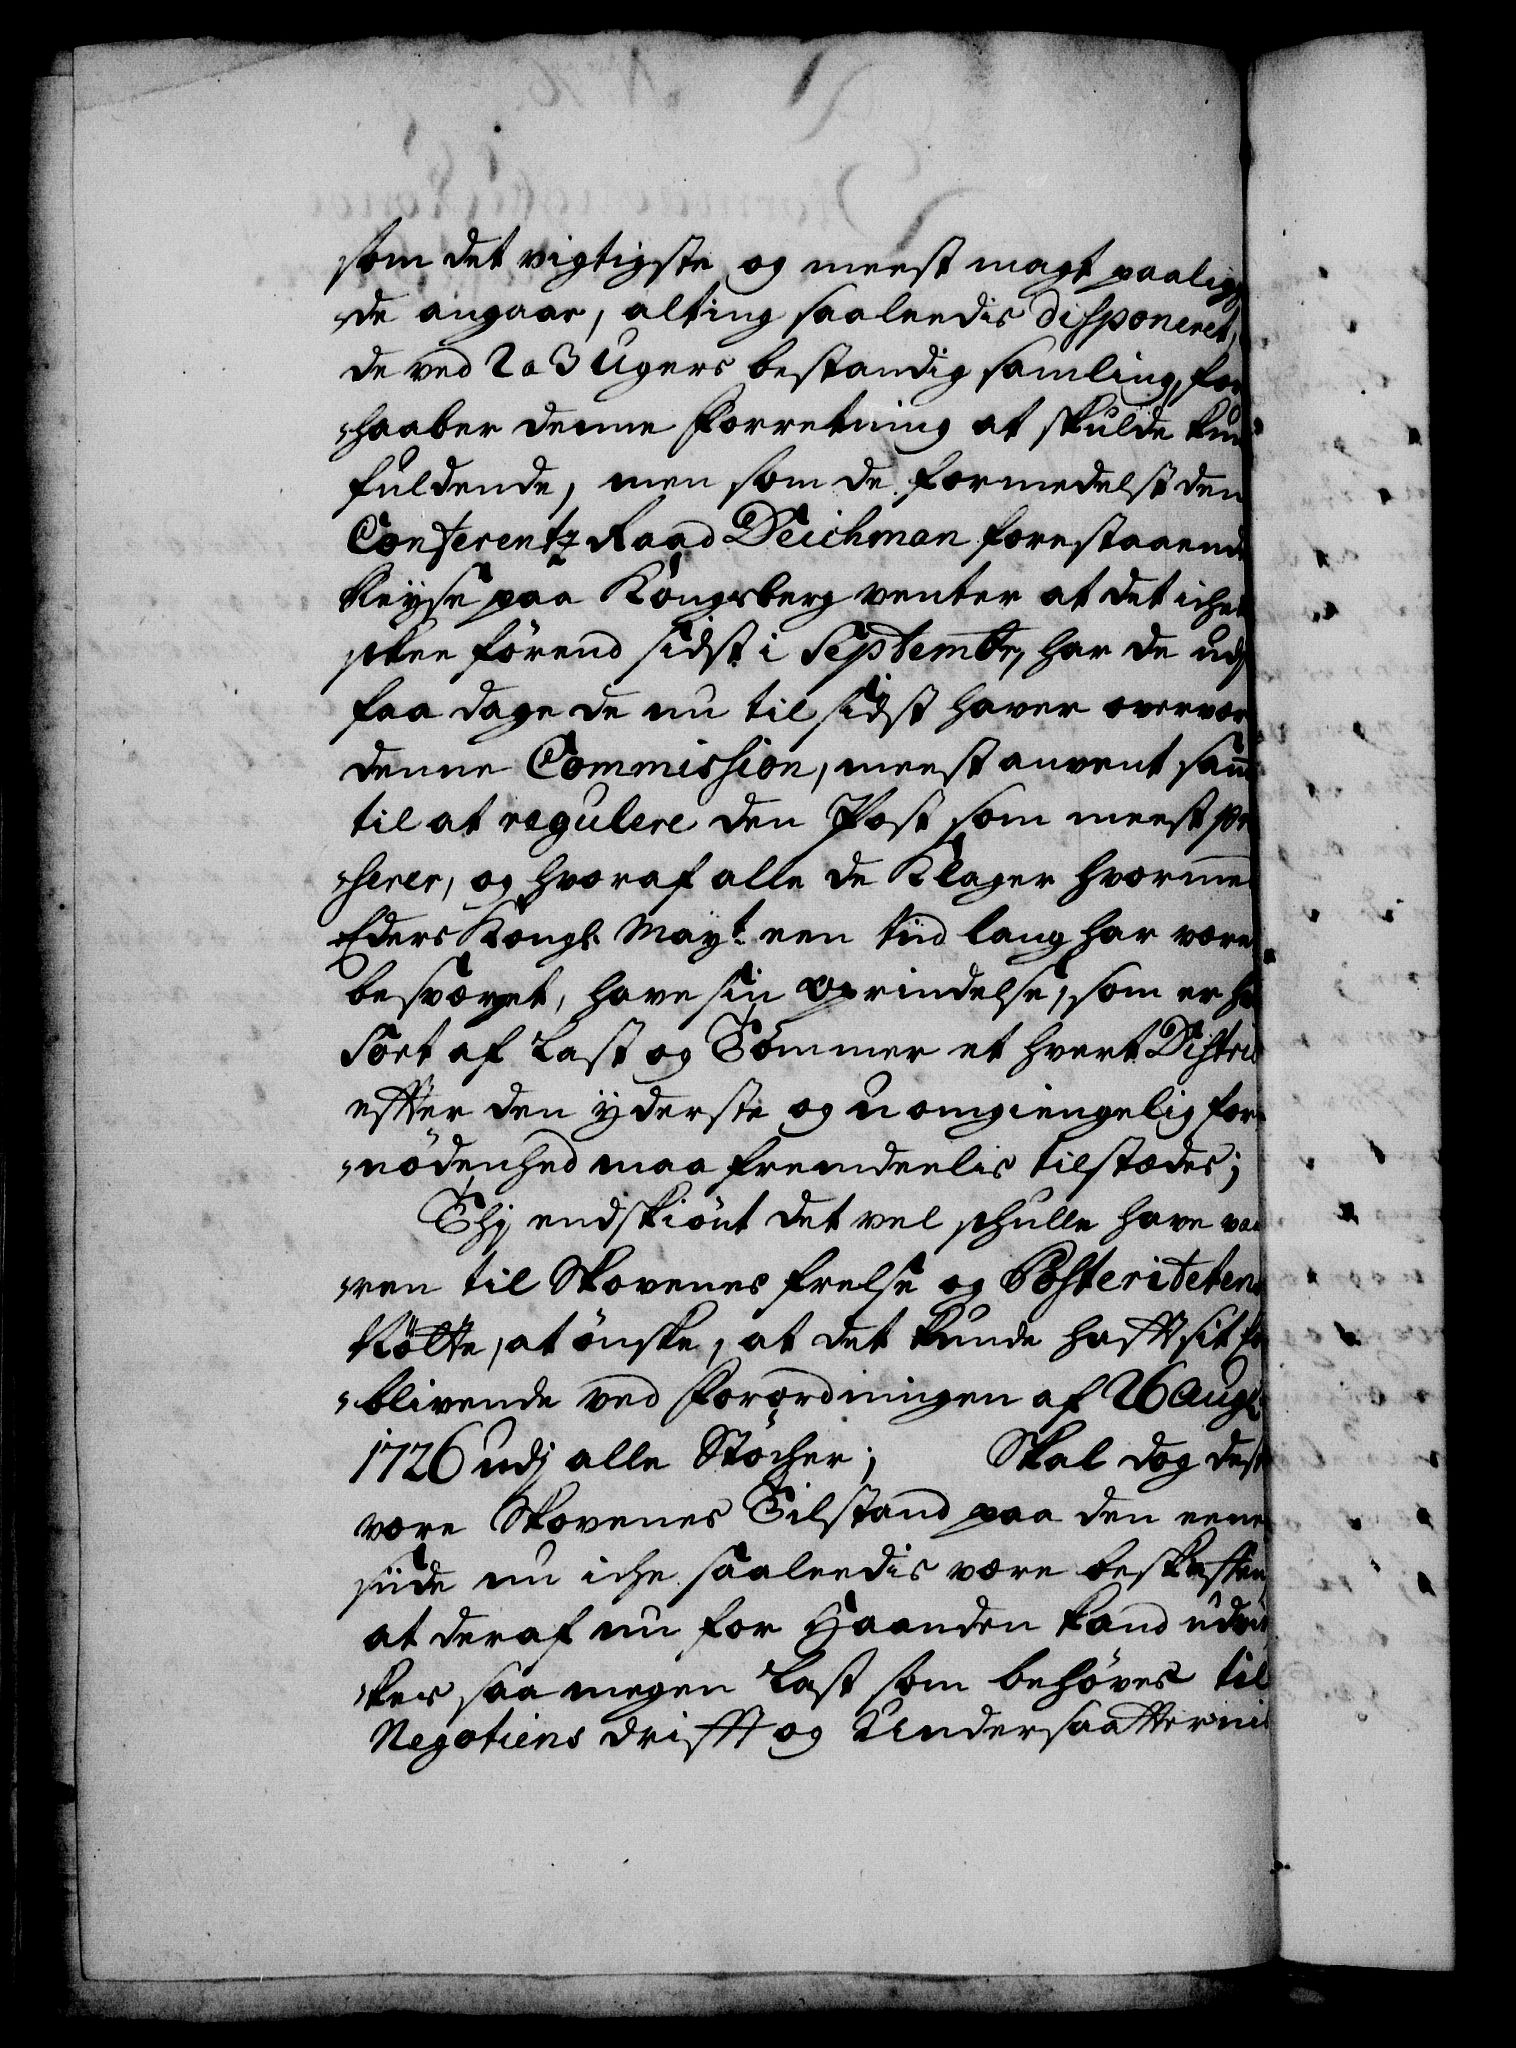 som det vigtigste og meest magt paalig
de angaar, alting saaleedis disponeret,
de ved 2 a 3 Ugers bestandig samling, for
haaber denne Forretning at skulde kun
fuldende, men som de formedelst den
Conferentz Raad Deichman forestaaend
Reyse paa Kongsberg venter at det iche
skee förend sidst i Septembr, har de udj
faa dage de nu til sidst haver overvær
denne Commission, meest anvent sam
til at regulere den Post som meest pr
serer, og hvoraf alle de Klager hvormed
Eders Kongl. Mayt. een tiid lang har være
besværget, have sin Oprindelse, som er h
Sort af Last og Tömmer et hvert Distri
effter den yderste og Uomgiengelig for
nödenhed maa fremdeelis tilstædes;
Thj endskiönt det vel schulle have væ
ren til Skovenes frelse og Posteritetens
Nötte, at önske, at det kunde hafft sit for
blivende ved Forordningen af 26 Augt.
1726 udj alle Stöcher; Skal dog des
være Skovenes Tilstand paa den eene
siide nu iche saaleedis være beskaffen,
at deraf nu for Haanden kand udvir
kes saa megen Last som behöves til
Negotiens drifft og Undersaatternis